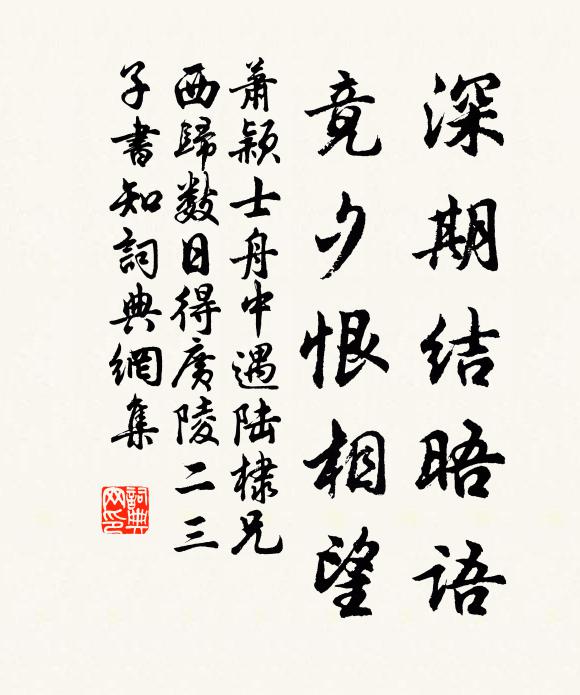 深期结晤语
竟夕恨相望
萧颖士舟中遇陆棣兄
西歸数日得廣陵二三
子書知詞典網集
詞典
网印